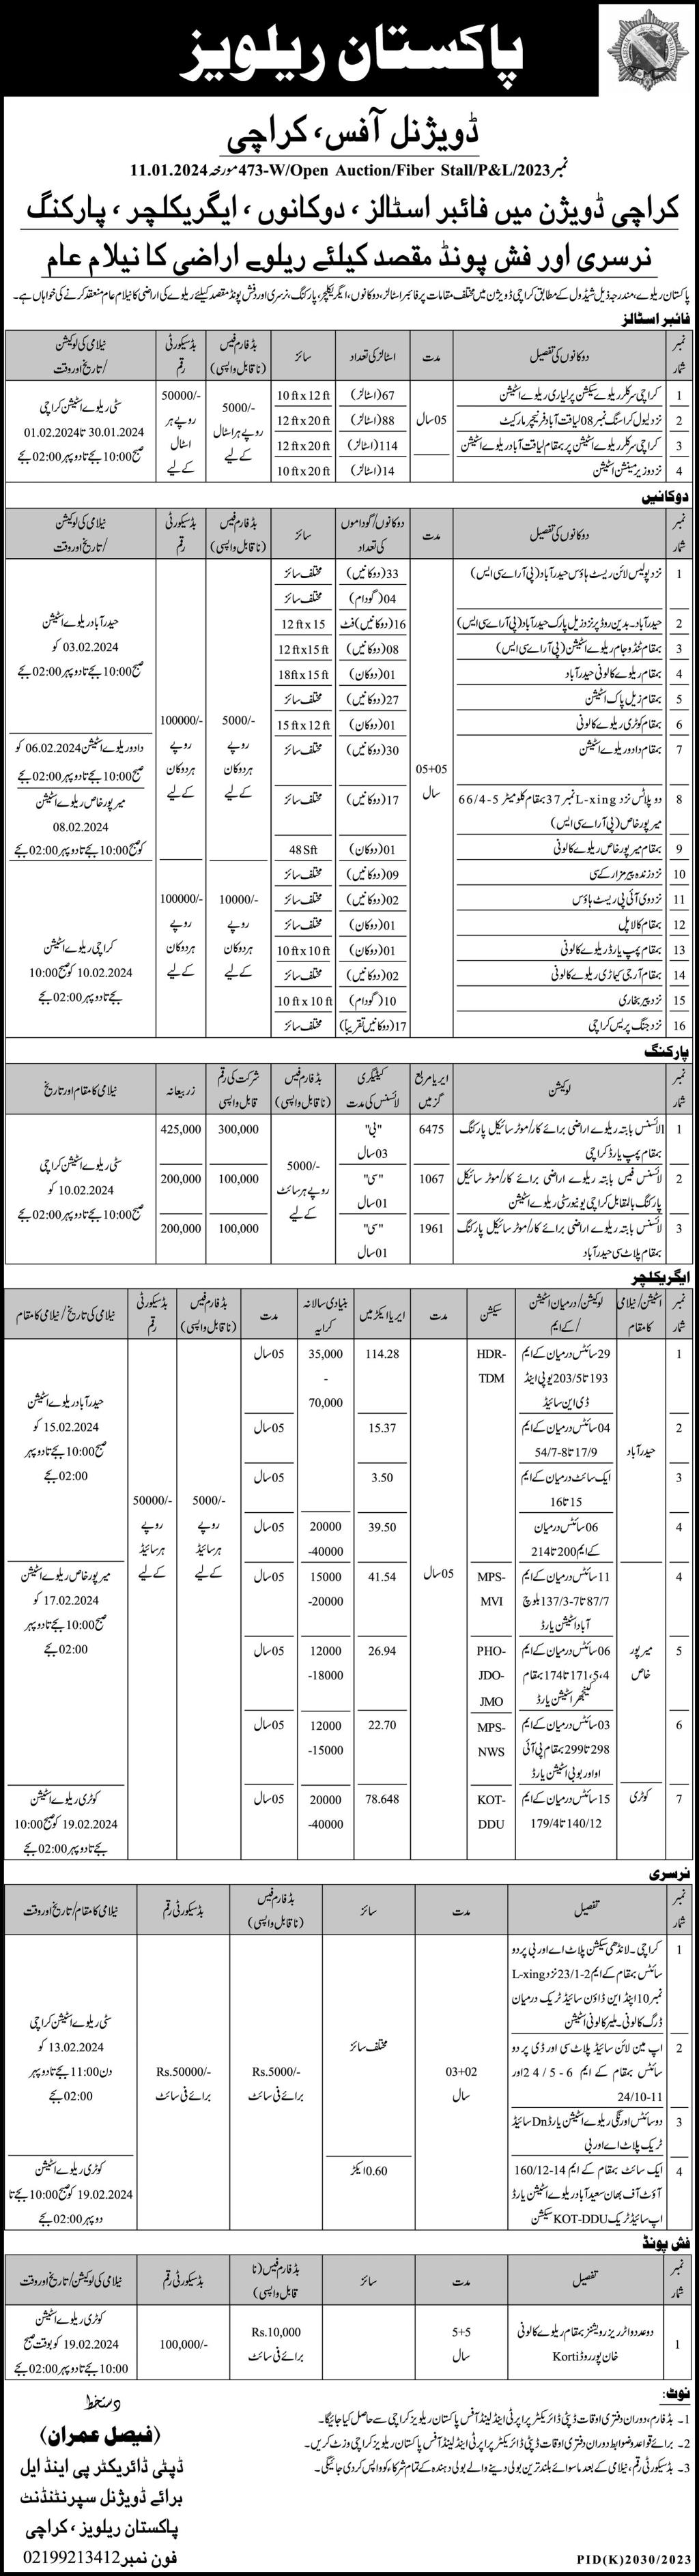 پاکستان ریلویز
ڈویژنل آفس، کراچی
نمبر473-W/Open Auction/Fiber Stall/P&L/2023 مورخہ 11.01.2024
کراچی ڈویژن میں فائبر اسٹالز، دوکانوں، ایگریکلچر، پارکنگ
نرسری اور فش پونڈ مقصد کیلئے ریلوے اراضی کا نیلام عام
پاکستان ریلوے، مندرجہ ذیل شیڈول کے مطابق کراچی ڈویژن میں مختلف مقامات پر فائبر اسٹالز، دوکانوں، ایگریکلچر، پارکنگ، نرسری اور فش پونڈ مقصد کیلئے ریلوے کی اراضی کا نیلام عام منعقد کرنے کی خواہاں ہے۔
فائبر اسٹالز
نمبر شمار | دوکانوں کی تفصیل | مدت | اسٹالز کی تعداد | سائز | بڈ فارم فیس (ناقابل واپسی) | بڈ سیکورٹی رقم | نیلامی کی لوکیشن /تاریخ اور وقت
1 | کراچی سرکلر ریلوے سیکشن پر لیاری ریلوے اسٹیشن | 05سال | 67(اسٹالز) | 10 ft x 12 ft | 5000/- روپے ہر اسٹال کے لیے | 50000/- روپے ہر اسٹال کے لیے | سٹی ریلوے اسٹیشن کراچی 30.01.2024 تا 01.02.2024 صبح 10:00 بجے تا دوپہر 02:00 بجے
2 | نزد لیول کراسنگ نمبر 08 لیاقت آباد فرنیچر مارکیٹ | 88(اسٹالز) | 12 ft x 20 ft
3 | کراچی سرکلر ریلوے اسٹیشن پر بمقام لیاقت آباد ریلوے اسٹیشن | 114(اسٹالز) | 12 ft x 20 ft
4 | نزد وزیر مینشن اسٹیشن | 14(اسٹالز) | 10 ft x 20 ft
دوکانیں
نمبر شمار | دوکانوں کی تفصیل | مدت | دوکانوں/گوداموں کی تعداد | سائز | بڈ فارم فیس (ناقابل واپسی) | بڈ سیکورٹی رقم | نیلامی کی لوکیشن /تاریخ اور وقت
1 | نزد پولیس لائن ریسٹ ہاؤس حیدرآباد (پی آر اے سی ایس) | 05+05 سال | 33(دوکانیں) | مختلف سائز | 5000/- روپے ہر دوکان کے لیے | 100000/- روپے ہر دوکان کے لیے | حیدرآباد ریلوے اسٹیشن 03.02.2024 کو صبح 10:00 بجے تا دوپہر 02:00 بجے
04(گودام) | مختلف سائز
2 | حیدرآباد۔ بدین روڈ پر نزد زیل پارک حیدرآباد (پی آر اے سی ایس) | 16(دوکانیں) فٹ | 12 ft x 15
3 | بمقام ٹنڈو جام ریلوے اسٹیشن (پی آر اے سی ایس) | 08(دوکانیں) | 12 ft x 15 ft
4 | بمقام ریلوے کالونی حیدرآباد | 01(دوکان) | 18ft x 15 ft
5 | بمقام زیل پاک اسٹیشن | 27(دوکانیں) | مختلف سائز
6 | بمقام کوٹری ریلوے کالونی | 01(دوکان) | 15 ft x 12 ft
7 | بمقام دادو ریلوے اسٹیشن | 30(دوکانیں) | مختلف سائز | دادو ریلوے اسٹیشن 06.02.2024 کو صبح 10:00 بجے تا دوپہر 02:00 بجے
8 | دو پلاٹس نزد L-xing نمبر 37 بمقام کلومیٹر 66/4-5 میرپورخاص (پی آر اے سی ایس) | 17(دوکانیں) | مختلف سائز | میرپورخاص ریلوے اسٹیشن 08.02.2024 کو صبح 10:00 بجے تا دوپہر 02:00 بجے
9 | بمقام میرپورخاص ریلوے کالونی | 01(دوکان) | 48 Sft
10 | نزد زندہ پیر مزار کے سی | 09(دوکانیں) | مختلف سائز | 10000/- روپے ہر دوکان کے لیے | 100000/- روپے ہر دوکان کے لیے | کراچی ریلوے اسٹیشن 10.02.2024 کو صبح 10:00 بجے تا دوپہر 02:00 بجے
11 | نزد وی آئی پی ریسٹ ہاؤس | 02(دوکانیں) | مختلف سائز
12 | بمقام کالاپل | 01(دوکان) | مختلف سائز
13 | بمقام پمپ یارڈ ریلوے کالونی | 01(دوکان) | 10 ft x 10 ft
14 | بمقام آر جی کیماڑی ریلوے کالونی | 02(دوکانیں) | مختلف سائز
15 | نزد پیر بخاری | 10(گودام) | 10 ft x 10 ft
16 | نزد جنگ پریس کراچی | 17(دوکانیں تقریباً) | مختلف سائز
پارکنگ
نمبر شمار | لوکیشن | ایریا مربع گز میں | کیٹیگری لائسنس کی مدت | بڈ فارم فیس (ناقابل واپسی) | شرکت کی رقم قابل واپسی | زر بیعانہ | نیلامی کا مقام اور تاریخ
1 | لائسنس بابتہ ریلوے اراضی برائے کار/موٹر سائیکل پارکنگ بمقام پمپ یارڈ کراچی | 6475 | "بی" 03سال | 5000/- روپے ہر سائٹ کے لیے | 300,000 | 425,000 | سٹی ریلوے اسٹیشن کراچی 10.02.2024 کو صبح 10:00 بجے تا دوپہر 02:00 بجے
2 | لائسنس فیس بابتہ ریلوے اراضی برائے کار/موٹر سائیکل پارکنگ بالمقابل کراچی یونیورسٹی ریلوے اسٹیشن | 1067 | "سی" 01سال | 100,000 | 200,000
3 | لائسنس بابتہ ریلوے اراضی برائے کار/موٹر سائیکل پارکنگ بمقام پلاٹ سی حیدرآباد | 1961 | "سی" 01سال | 100,000 | 200,000
ایگریکلچر
نمبر شمار | اسٹیشن/نیلامی کا مقام | لوکیشن/درمیان اسٹیشن /کے ایم | سیکشن | مدت | ایریا ایکڑ میں | بنیادی سالانہ کرایہ | مدت | بڈ فارم فیس (ناقابل واپسی) | بڈ سیکورٹی رقم | نیلامی کی تاریخ/نیلامی کا مقام
1 | حیدرآباد | 29 سائٹس درمیان کے ایم 193 تا 203/5 یو پی اینڈ ڈی این سائیڈ | HDR-TDM | 05سال | 114.28 | 35,000 - 70,000 | 05سال | 5000/- روپے ہر سائیڈ کے لیے | 50000/- روپے ہر سائیڈ کے لیے | حیدرآباد ریلوے اسٹیشن 15.02.2024 کو صبح 10:00 بجے تا دوپہر 02:00 بجے
2 | 04 سائٹس درمیان کے ایم 17/9 تا 54/7-8 | 15.37 | 05سال
3 | ایک سائٹ درمیان کے ایم 15 تا 16 | 3.50 | 05سال
4 | 06 سائٹس درمیان کے ایم 200 تا 214 | 39.50 | 20000 -40000 | 05سال
4 | میرپور خاص | 11 سائٹس درمیان کے ایم 87/7 تا 137/3-7 بلوچ آباد اسٹیشن یارڈ | MPS-MVI | 41.54 | 15000 -20000 | 05سال | میرپورخاص ریلوے اسٹیشن 17.02.2024 کو صبح 10:00 بجے تا دوپہر 02:00 بجے
5 | 06 سائٹس درمیان کے ایم 4،5، 171 تا 174 بمقام کھنجھر اسٹیشن یارڈ | PHO-JDO-JMO | 26.94 | 12000 -18000 | 05سال
6 | 03 سائٹس درمیان کے ایم 298 تا 299 بمقام پی آئی او اور بوبی اسٹیشن یارڈ | MPS-NWS | 22.70 | 12000 -15000 | 05سال
7 | کوٹری | 15 سائٹس درمیان کے ایم 140/12 تا 179/4 | KOT-DDU | 78.648 | 20000 -40000 | 05سال | کوٹری ریلوے اسٹیشن 19.02.2024 کو صبح 10:00 بجے تا دوپہر 02:00 بجے
نرسری
نمبر شمار | تفصیل | مدت | سائز | بڈ فارم فیس (ناقابل واپسی) | بڈ سیکورٹی رقم | نیلامی کا مقام/تاریخ اور وقت
1 | کراچی۔ لانڈھی سیکشن پلاٹ اے اور بی پر دو سائٹس بمقام کے ایم 23/1-2 نزد L-xing نمبر 10 اینڈ این ڈاؤن سائیڈ ٹریک درمیان ڈرگ کالونی۔ ملیر کالونی اسٹیشن | 03+02 سال | مختلف سائز | Rs.5000/- برائے فی سائٹ | Rs.50000/- برائے فی سائٹ | سٹی ریلوے اسٹیشن کراچی 13.02.2024 کو دن 11:00 بجے تا دوپہر 02:00 بجے
2 | اپ مین لائن سائیڈ پلاٹ سی اور ڈی پر دو سائٹس بمقام کے ایم 24/5-6 اور 24/10-11
3 | دو سائٹس اورنگی ریلوے اسٹیشن یارڈ Dn سائیڈ ٹریک پلاٹ اے اور بی
4 | ایک سائٹ بمقام کے ایم 160/12-14 آؤٹ آف بھان سعید آباد ریلوے اسٹیشن یارڈ اپ سائیڈ ٹریک KOT-DDU سیکشن | 0.60 ایکڑ | کوٹری ریلوے اسٹیشن 19.02.2024 کو صبح 10:00 بجے تا دوپہر 02:00 بجے
فش پونڈ
نمبر شمار | تفصیل | مدت | سائز | بڈ فارم فیس (ناقابل واپسی) | بڈ سیکورٹی رقم | نیلامی کی لوکیشن/تاریخ اور وقت
1 | دو عدد واٹر ریزرویشنز بمقام ریلوے کالونی خان پور روڈ Korti | 5+5 سال | Rs.10,000 برائے فی سائٹ | 100,000/- | کوٹری ریلوے اسٹیشن 19.02.2024 کو بوقت صبح 10:00 بجے تا دوپہر 02:00 بجے
نوٹ:
1۔ بڈ فارم، دوران دفتری اوقات ڈپٹی ڈائریکٹر پراپرٹی اینڈ لینڈ آفس پاکستان ریلویز کراچی سے حاصل کیا جائیگا۔
2۔ برائے قواعد و ضوابط دوران دفتری اوقات ڈپٹی ڈائریکٹر پراپرٹی اینڈ لینڈ آفس پاکستان ریلویز کراچی وزٹ کریں۔
3۔ بڈ سیکورٹی رقم، نیلامی کے بعد ماسوائے بلند ترین بولی دینے والے بولی دہندہ کے تمام شرکاء کو واپس کر دی جائیگی۔
دستخط
(فیصل عمران)
ڈپٹی ڈائریکٹر پی اینڈ ایل
برائے ڈویژنل سپرنٹنڈنٹ
پاکستان ریلویز، کراچی
فون نمبر 02199213412
PID(K)2030/2023